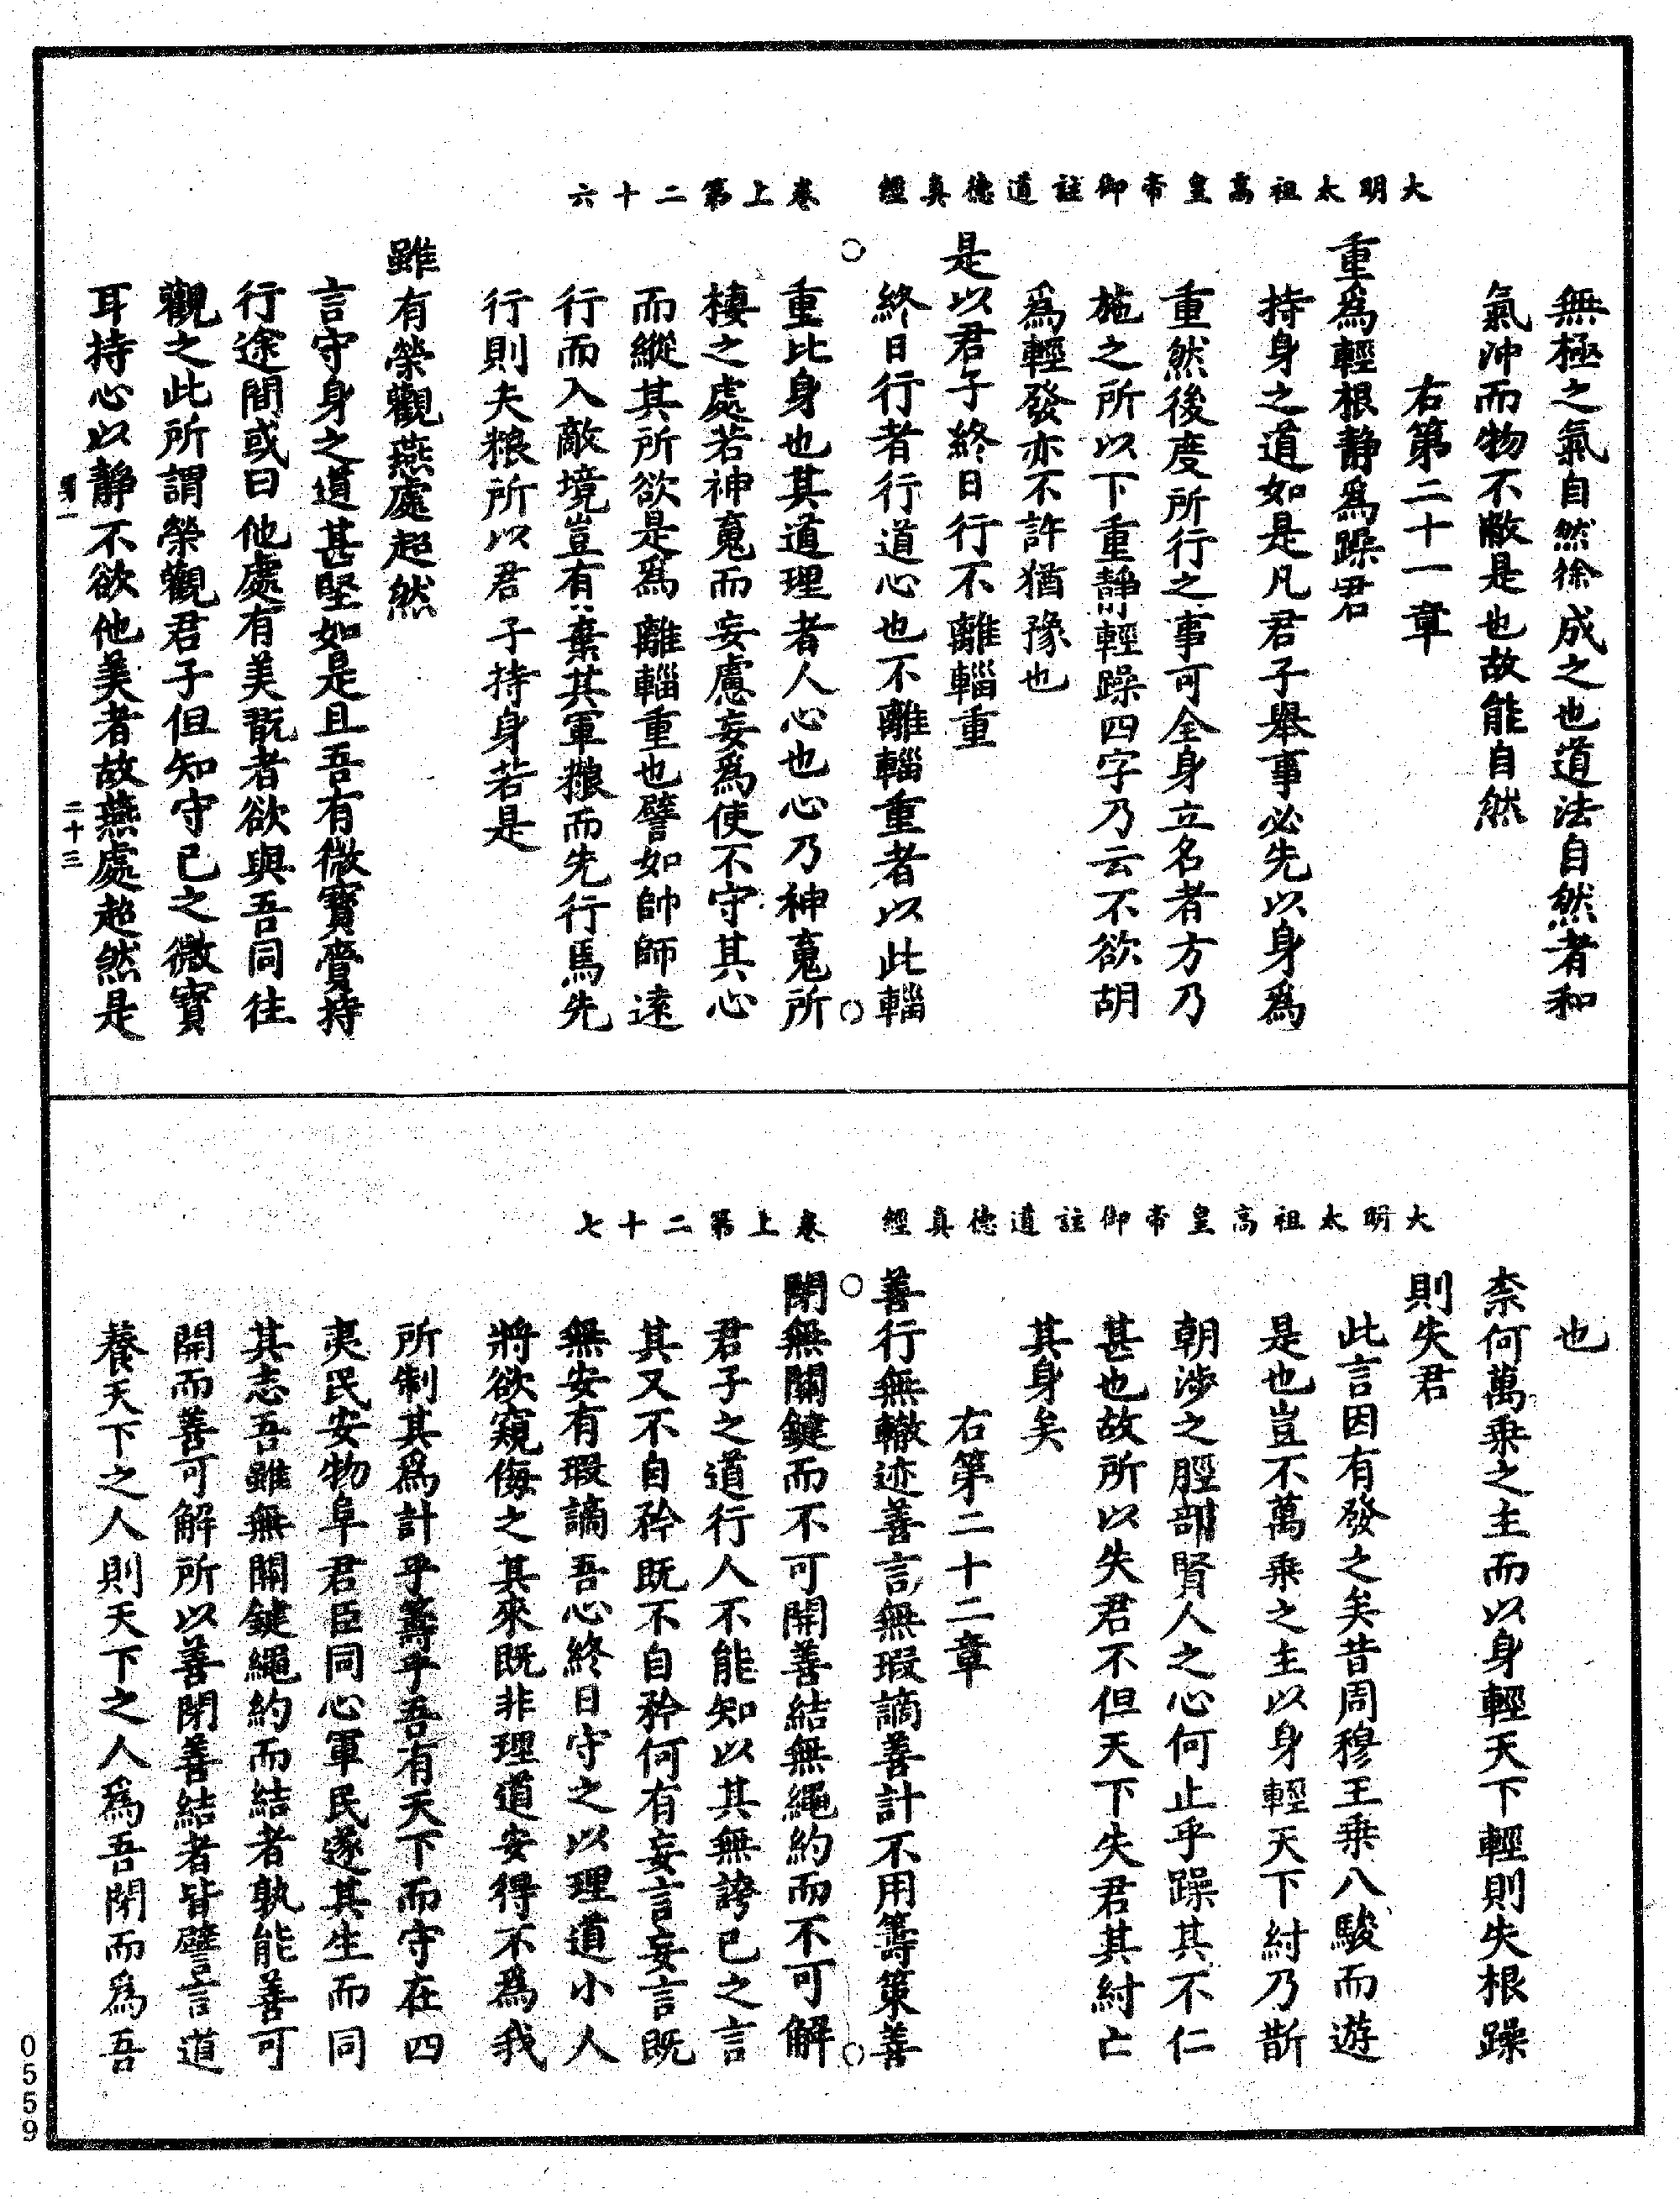 大明太祖高皇帝御註道德真經　卷上第二十六
無極之氣自然徐成之也道法自然者和
氣沖而物不敝是也故能自然
右第二十一章
重爲輕根靜爲躁君
持身之道如是凡君子舉事必先以身爲
重然後度所行之事可全身立名者方乃
施之所以下重靜輕躁四字乃云不欲胡
爲輕發亦不許猶豫也
是以君子終日行不離輜重
終日行者行道心也不離輜重者以此輜
重比身也其道理者人心也心乃神䰟所
棲之處若神䰟而妄慮妄爲使不守其心
而縱其所欲是爲離輜重也譬如帥師遠
行而入敵境豈有棄其軍糧而先行焉先
行則夫粮所以君子持身若是
雖有榮觀燕處超然
言守身之道甚堅如是且吾有微寶賫持
行途間或曰他處有美翫者欲與吾同往
觀之此所謂榮觀君子但知守已之微寶
耳持心以靜不欲他美者故燕處超然是
二十三
大明太祖高皇帝御註道德真經　卷上第二十七
也
柰何萬乗之主而以身輕天下輕則失根躁
則失君
此言因有發之矣昔周穆王乗八駿而遊
是也豈不萬乗之主以身輕天下紂乃斮
朝涉之脛剖賢人之心何止乎躁其不仁
甚也故所以失君不但天下失君其紂亡
其身矣
右第二十二章
善行無轍迹善言無瑕讁善計不用籌策善
閉無關鍵而不可開善結無繩約而不可解
君子之道行人不能知以其無誇已之言
其又不自矜既不自矜何有妄言妄言既
無安有瑕讁吾心終日守之以理道小人
將欲窺侮之其來既非理道安得不爲我
所制其爲計乎籌乎吾有天下而守在四
夷民安物阜君臣同心軍民遂其生而同
其志吾雖無關鍵繩約而結者孰能善可
開而善可解所以善閉善結者皆譬言道
養天下之人則天下之人爲吾閉而爲吾
0559